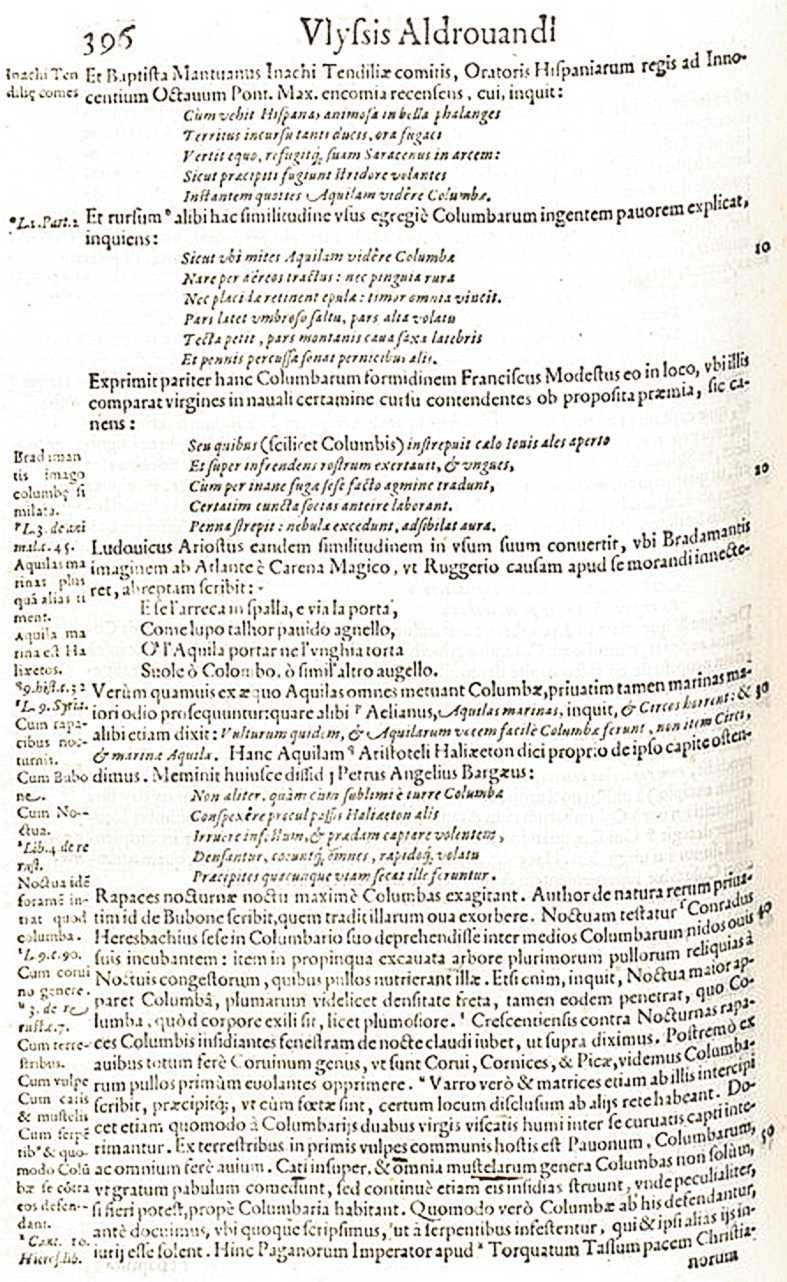 396 Vlyssis Aldrouandi
Inachi Ten
dilię comes
Et Baptista Mantuanus Inachi Tendiliæ comitis, Oratoris Hispaniarum regis ad Inno-
centium Octauum Pont. Max. encomia recensens, cui, inquit:
Cùm vehit Hispanas animosa in bella phalanges
Territus incursu tanti ducis, ora fugaci
Vertit equo, refugitq́; suam Saracenus in arcem:
Sicut præcipiti fugiunt stridore volantes
Instantem quoties Aquilam vidêre Columbæ.
*L.1.Part.2
Et rursum * alibi hac similitudine vsus egregiè Columbarum ingentem pauorem explicat,
inquiens:
10
Sicut vbi mites Aquilam vidêre Columbæ
Nare per aëreos tractus: nec pinguia rura
Nec placidæ retinent epulæ: timor omnia vincit.
Pars latet vmbroso saltu, pars alta volatu
Tecta petit, pars montanis caua saxa latebris
Et pennis percussa sonat pernicibus alis.
Exprimit pariter hanc Columbarum formidinem Franciscus Modestus eo in loco, vbi illis
comparat virgines in nauali certamine cursu contendentes ob proposita præmia, sic ca-
nens:
Seu quibus (scilicet Columbis) instrepuit cælo Iouis ales aperto
Et super infrendens rostrum exertauit, & vngues,
20
Cùm per inane fuga sese facto agmine tradunt,
Certatim cunctæ socias anteire laborant.
Penna strepit: nebulæ excedunt, adsibilat aura.
Bradiman
tis imago
columbę si
milata.
ʳL.3. de ani
mal.c.45.
Aquilas ma
rinas plus
quā alias ti
ment.
Aquila ma
rina est Ha
liæetos.
Ludouicus Ariostus eandem similitudinem in vsum suum conuertit, vbi Bradamantis
imaginem ab Atlante è Carena Magico, vt Ruggerio causam apud se morandi innecte-
ret, abreptam scribit:
E se l'arreca in spalla, e via la porta,
Come lupo talhor pauido agnello,
O' l'Aquila portar ne l'vnghia torta
Suole ò Colombo, ò simil'altro augello.
ᑫ9.hist.c.32
ʳL.9.Syria.
Cum rapa-
cibus noc-
turnis.
Cum Bubo
ne.
Cum No-
ctua.
ˢLib.4 de re
rust.
Noctua idē
foramē in-
trat quod
columba.
Verùm quamuis ex æquo Aquilas omnes metuant Columbæ, priuatim tamen marinas ma-
iori odio prosequuntur: quare alibi ᵖ Aelianus, Aquilas marinas, inquit, & Circos horrent: & 30
alibi etiam dixit: Vulturum quidem, & Aquilarum vocem facilè Columbæ ferunt, non item Circi,
& marinæ Aquilæ. Hanc Aquilam ᑫ Aristoteli Haliæeton dici proprio de ipso capite osten-
dimus. Meminit huiusce dissidij Petrus Angelius Bargæus:
Non aliter, quàm cùm sublimi è turre Columbæ
Conspexêre procul passis Haliaeton alis
Irruere infestum, & prædam captare volentem,
Densantur, coëuntq́; omnes, rapidoq́; volatu
Præcipites quacunque viam secat ille feruntur.
Rapaces nocturnæ noctu maximè Columbas exagitant. Author de natura rerum priua-
tim id de Bubone scribit, quem tradit illarum oua exorbere. Noctuam testatur ˢ Conradus 40
Heresbachius sese in Columbario suo deprehendisse inter medios Columbarum nidos ouis
suis incubantem: item in propinqua excauata arbore plurimorum pullorum reliquias à
Noctuis congestorum, quibus pullos nutrierant illæ. Etsi enim, inquit, Noctua maior ap-
paret Columbâ, plumarum videlicet densitate freta, tamen eodem penetrat, quo Co-
lumba, quòd corpore exili sit, licet plumosiore. ᵗ Crescentiensis contra Nocturnas rapa-
ces Columbis insidiantes fenestram de nocte claudi iubet, ut supra diximus. Postremò ex
auibus totum ferè Coruinum genus, vt sunt Corui, Cornices, & Picæ, videmus Columba-
rum pullos primùm euolantes opprimere. ᵘ Varro verò & matrices etiam ab illis intercipi
scribit, præcipitq́;, vt cùm fœtæ sint, certum locum disclusum ab alijs rete habeant. Do-
cet etiam quomodo à Columbarijs duabus virgis viscatis humi inter se curuatis capti inte-
rimantur. Ex terrestribus in primis vulpes communis hostis est Pauonum, Columbarum, 50
ac omnium ferè auium. Cati insuper, & omnia mustelarum genera Columbas non solùm,
vt gratum pabulum comedunt, sed continuè etiam eis insidias struunt, vnde peculialiter,
si fieri potest, propè Columbaria habitant. Quomodo verò Columbæ ab his defendantur,
antè docuimus, vbi quoque scripsimus, ut à serpentibus infestentur, qui & ipsi alias ijs in-
iurij esse solent. Hinc Paganorum Imperator apud ˣ Torquatum Tassum pacem Christia-
norum
ᵗL.9.c.90.
Cum corui
no genere.
ᵘ3. de re
rust.c.7.
Cum terre-
stribus.
Cum vulpe
Cum catis
& mustelis
Cum serpē
tib⁹ & quo-
modo Colū
bæ se cōtra
eos defen-
dant.
ˣCant. 10.
Hieros.lib.